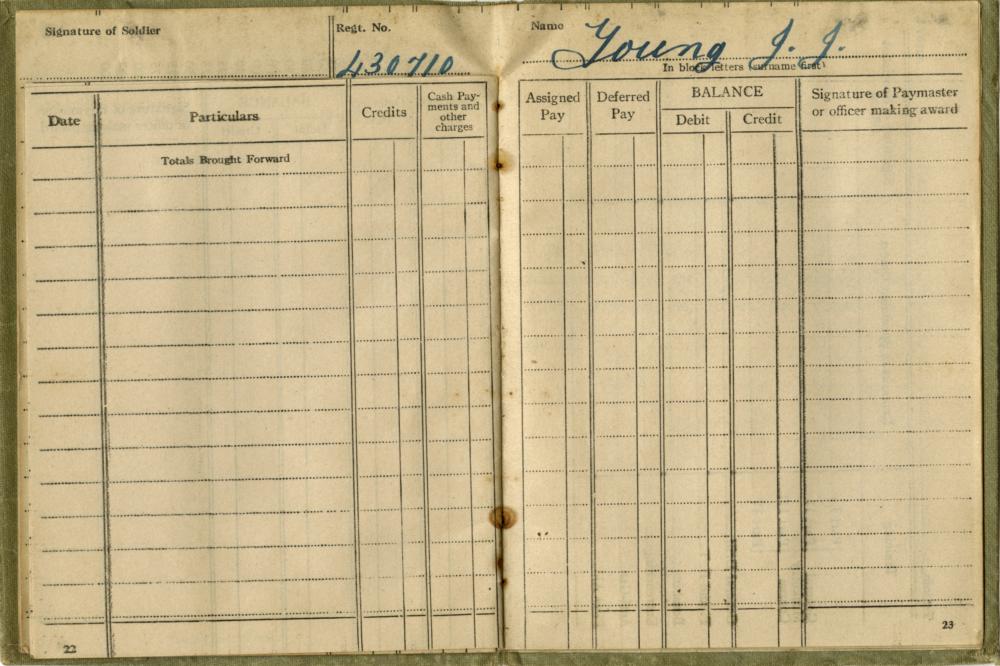 Signature of Soldier
Regt. No.
430710
Date
Particulars
Credits
Cash Pay-
ments and
other
charges
Totals Brought Forward
22
Name
Young J. J.
In block letters (surname first)
Assigned
Pay
Deferred
Pay
BALANCE
Debit
Credit
Signature of Paymaster
or officer making award
23